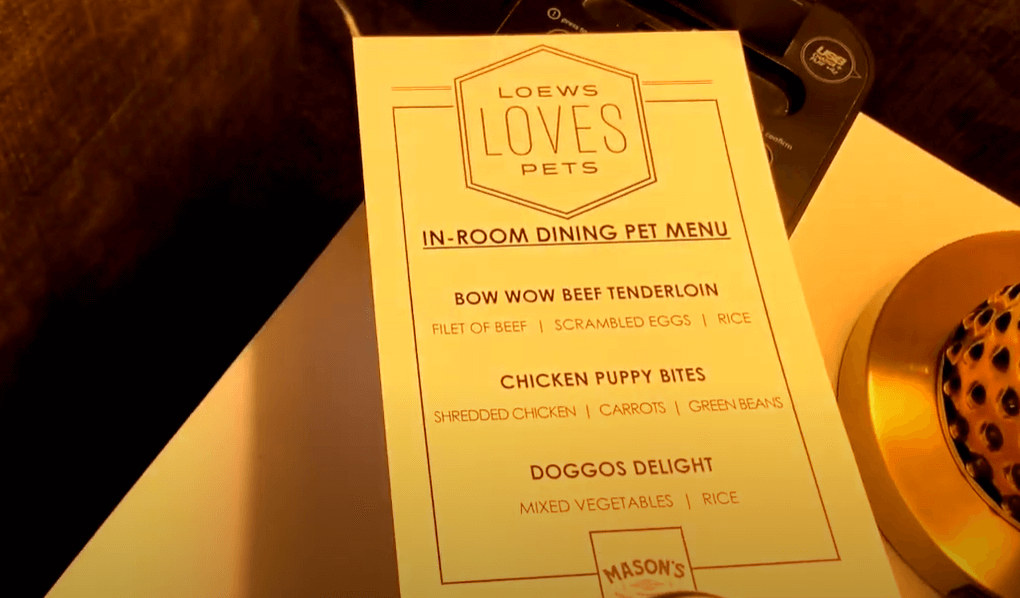 LOEWS
LOVES
PETS
IN-ROOM DINING PET MENU
BOW WOW BEEF TENDERLOIN
FILET OF BEEF | SCRAMBLED EGGS | RICE
CHICKEN PUPPY BITES
SHREDDED CHICKEN | CARROTS | GREEN BEANS
DOGGOS DELIGHT
MIXED VEGETABLES | RICE
MASON'S
press
USB
confirm